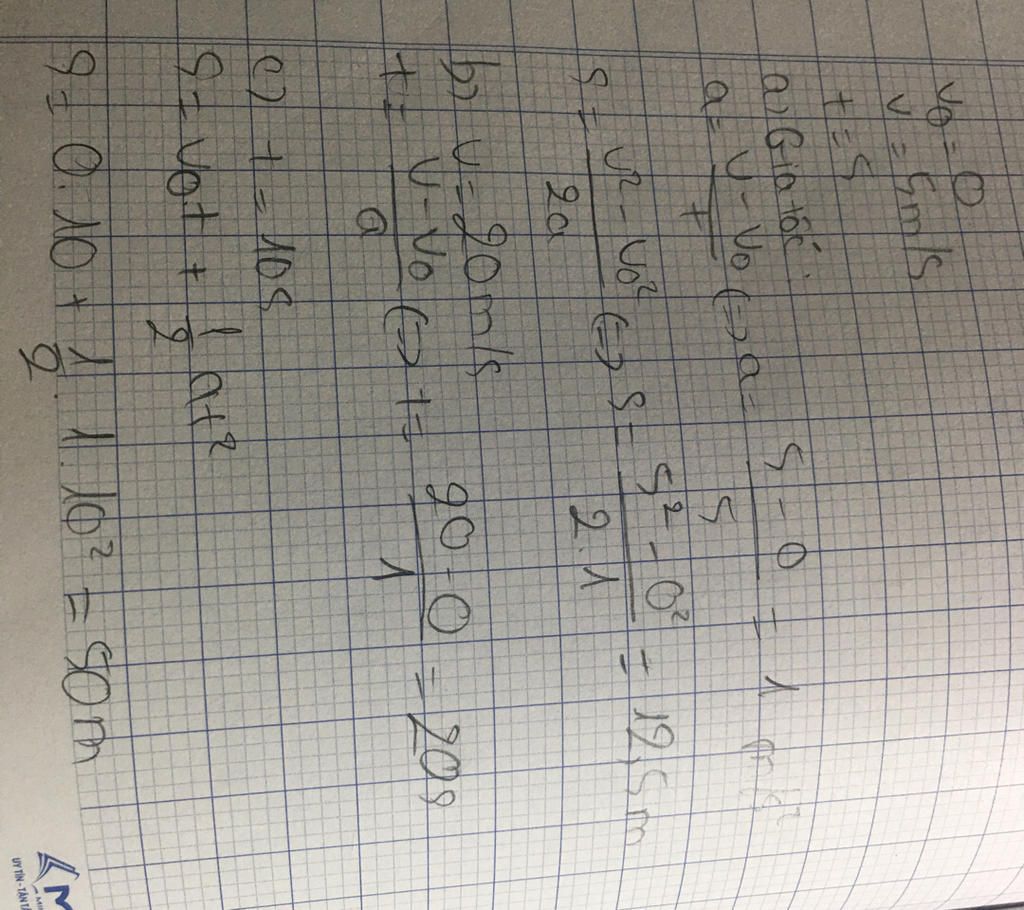 v₀ = 0
v = 5m/s
t = 5
a) Gia tốc:
a = \frac{v - v₀}{t} <=> a = \frac{5 - 0}{5} = 1 m/s²
s = \frac{v² - v₀²}{2a} <=> s = \frac{5² - 0²}{2.1} = 12,5m
b) v = 20m/s
t = \frac{v - v₀}{a} <=> t = \frac{20 - 0}{1} = 20s
c) t = 10s
s = v₀t + \frac{1}{2} at²
s = 0.10 + \frac{1}{2}.1.10² = 50m
UY TÍN - TẬN TÂ